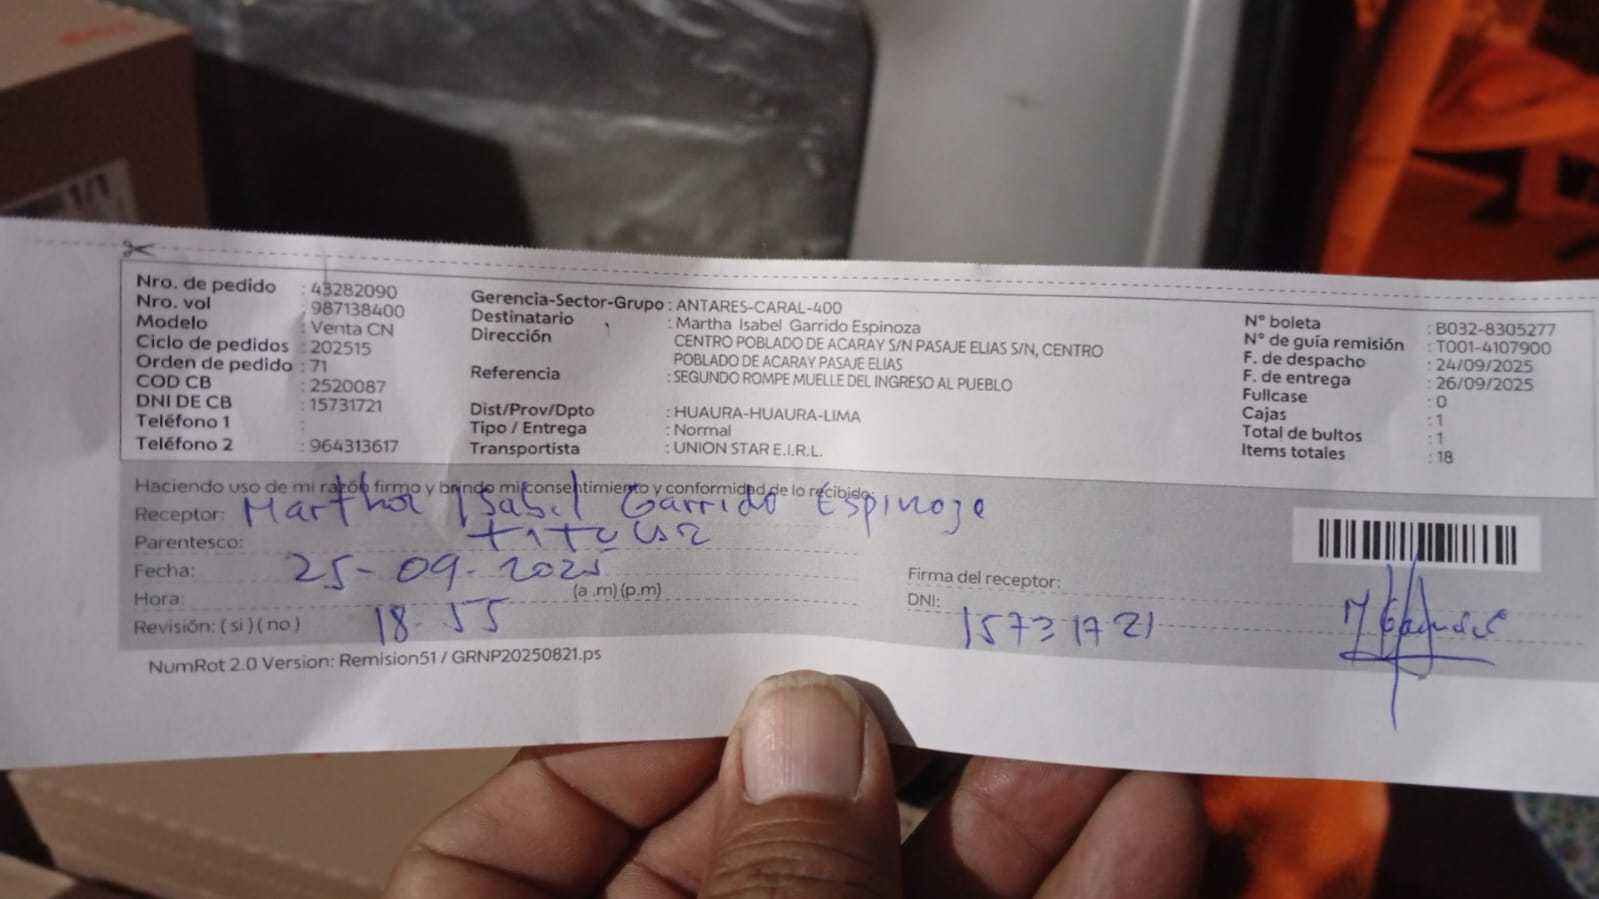 Nro. de pedido : 43282090
Nro. vol : 987138400
Modelo : Venta CN
Ciclo de pedidos : 202515
Orden de pedido : 71
COD CB : 2520087
DNI DE CB : 15731721
Teléfono 1 :
Teléfono 2 : 964313617
Gerencia-Sector-Grupo : ANTARES-CARAL-400
Destinatario : Martha Isabel Garrido Espinoza
Dirección CENTRO POBLADO DE ACARAY S/N PASAJE ELIAS S/N, CENTRO
POBLADO DE ACARAY PASAJE ELIAS
Referencia : SEGUNDO ROMPE MUELLE DEL INGRESO AL PUEBLO
Dist/Prov/Dpto : HUAURA-HUAURA-LIMA
Tipo / Entrega : Normal
Transportista : UNION STAR E.I.R.L.
N° boleta : B032-8305277
N° de guía remisión : T001-4107900
F. de despacho : 24/09/2025
F. de entrega : 26/09/2025
Fullcase : 0
Cajas : 1
Total de bultos : 1
Items totales : 18
Haciendo uso de mi razón firmo y brindo mi consentimiento y conformidad de lo recibido:
Receptor: Martha Isabel Garrido Espinoza
Parentesco:
Fecha: 25-09-2025
Hora: 18-55 (a .m) (p.m)
Revisión: ( si ) ( no )
Firma del receptor:
DNI: 15731721
NumRot 2.0 Version: Remision51 / GRNP20250821.ps
1/1